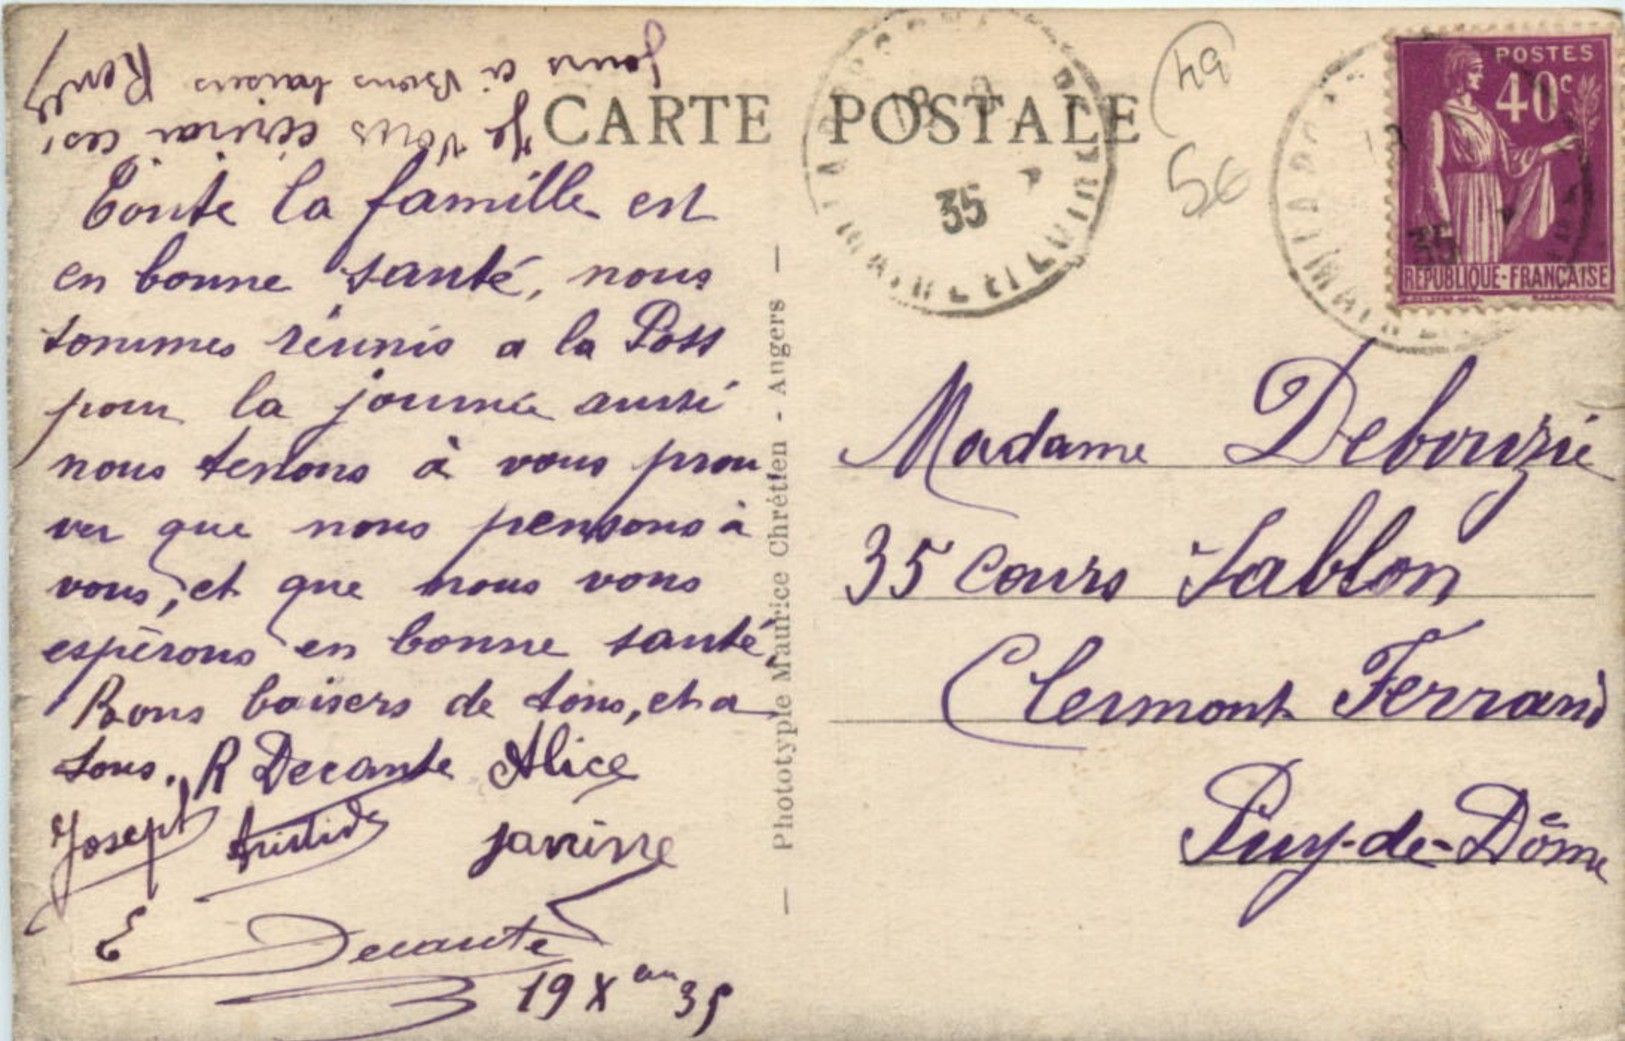 Je vous écrirai ces
jours ci Bons baisers René
Toute la famille est
en bonne santé, nous
sommes réunis a la Poss
pour la journée aussi
nous tenons à vous prou
ver que nous pensons à
vous, et que nous vous
espèrons en bonne santé,
Bons baisers de tous, et a
tous. R Decante Alice
Joseph Aristide Janine
E Decante
19 X 35
CARTE POSTALE
35
49
5€
POSTES
40c
35
REPUBLIQUE-FRANÇAISE
— Phototypie Maurice Chrétien - Angers —
Madame Debouzie
35 Cours Sablon
Clermont Ferrand
Puy-de-Dôme